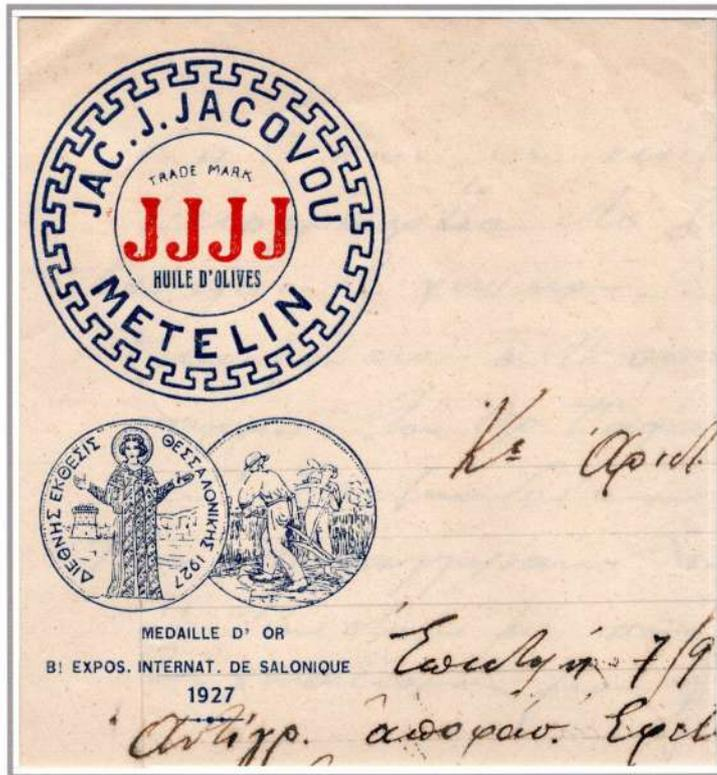 JAC. J. JACOVOU
TRADE MARK
JJJJ
HUILE D'OLIVES
METELIN
ΔΙΕΘΝΗΣ ΕΚΘΕΣΙΣ ΘΕΣΣΑΛΟΝΙΚΗΣ 1927
MEDAILLE D' OR
B! EXPOS. INTERNAT. DE SALONIQUE
1927
Κε
7/9
Αντίγρ. αποφάσ. Εφετ